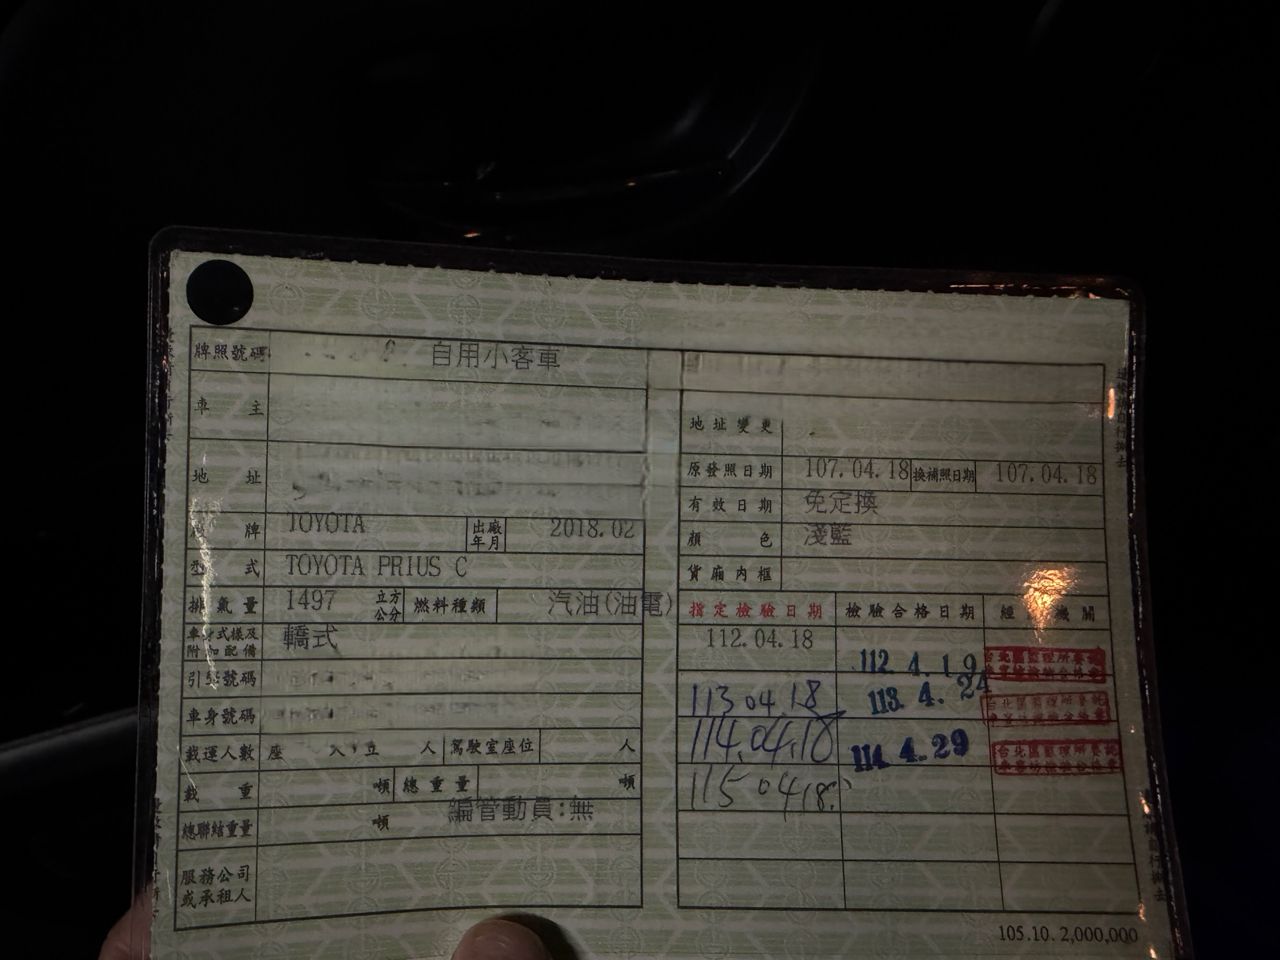 牌照號碼 自用小客車
車主
地址
廠牌 TOYOTA 出廠年月 2018.02
型式 TOYOTA PRIUS C
排氣量 1497 立方公分 燃料種類 汽油(油電)
車身式樣及附加配備 轎式
引擎號碼
車身號碼
載運人數 座 人,立 人 駕駛室座位 人
載重 噸 總重量 噸
總聯結重量 噸 編管動員:無
服務公司或承租人
地址變更
原發照日期 107.04.18 換補照日期 107.04.18
有效日期 免定換
顏色 淺藍
貨廂內框
指定檢驗日期 檢驗合格日期 經 機關
112.04.18 112.4.19
113.04.18 113.4.24
114.04.18 114.4.29
115.04.18
105.10.2,000,000